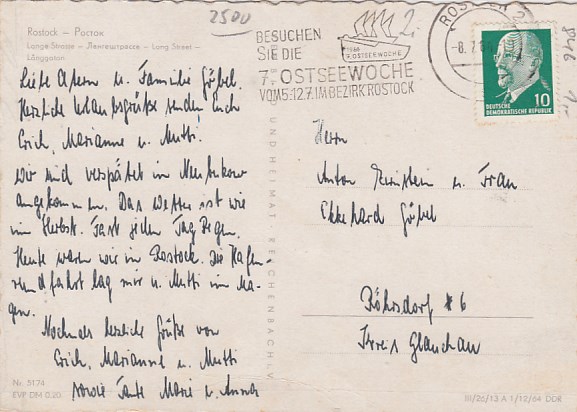 2500
Rostock — Росток
Lange Strasse — Лангештрассе — Long Street —
Långgatan
Liebe Eltern u. Familie Göbel.
Herzliche Urlaubsgrüße senden Euch
Erich, Marianne u. Mutti.
Wir sind verspätet in Neubukow
angekommen. Das Wetter ist wie
im Herbst. Fast jeden Tag Regen.
Heute waren wir in Rostock. Die Hafen-
rundfahrt lag mir u. Mutti im Ma-
gen.
Nochmals herzliche Grüße von
Erich, Marianne u. Mutti
sowie Tante Marie u. Anna
Nr. 5174
EVP DM 0.20
BESUCHEN
SIE DIE
7. OSTSEEWOCHE
VOM 5.-12.7. IM BEZIRK ROSTOCK
1964
7. OSTSEEWOCHE
ROSTOCK 2
-8.7.64
DEUTSCHE
DEMOKRATISCHE REPUBLIK
10
UND HEIMAT · REICHENBACH I. V.
Herrn
Anton u. Frau
Ekkehard Göbel
Röhrsdorf * 6
Kreis Glauchau
III/26/13 A 1/12/64 DDR